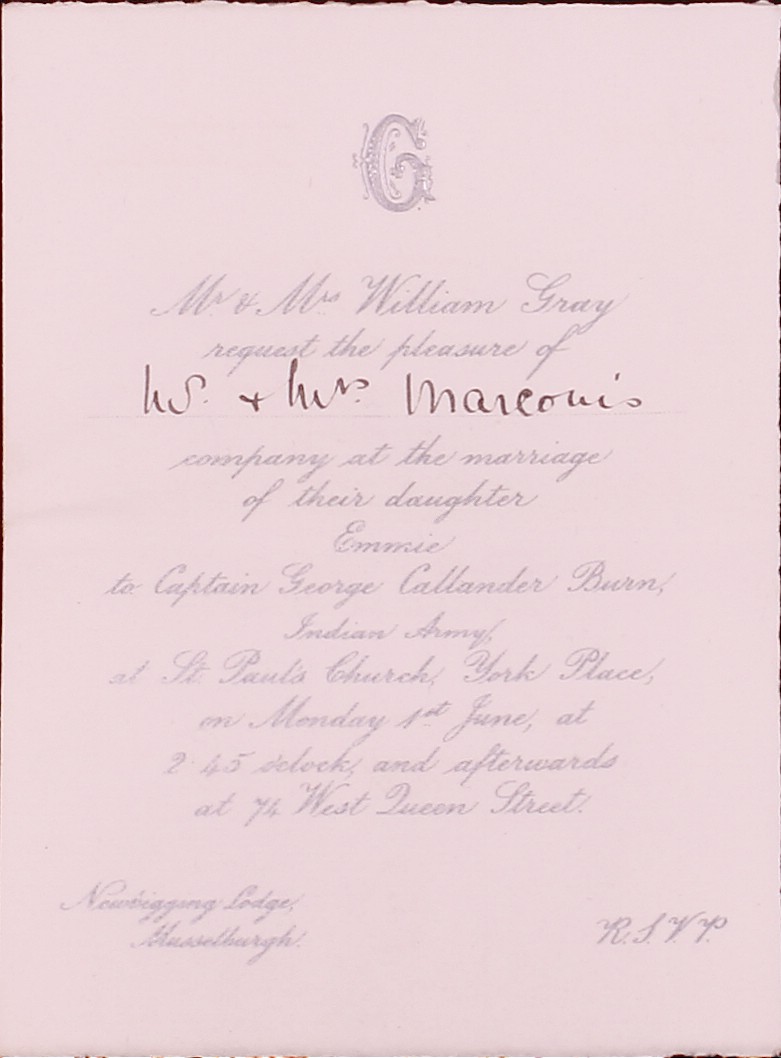 G
Mr. & Mrs. William Gray
request the pleasure of
Mr. & Mrs. Marconi's
company at the marriage
of their daughter
Emmie
to Captain George Callander Burn,
Indian Army,
at St. Paul's Church, York Place,
on Monday 1st June, at
2.45 o'clock, and afterwards
at 74 West Queen Street.
Newbigging Lodge,
Musselburgh.
R.S.V.P.